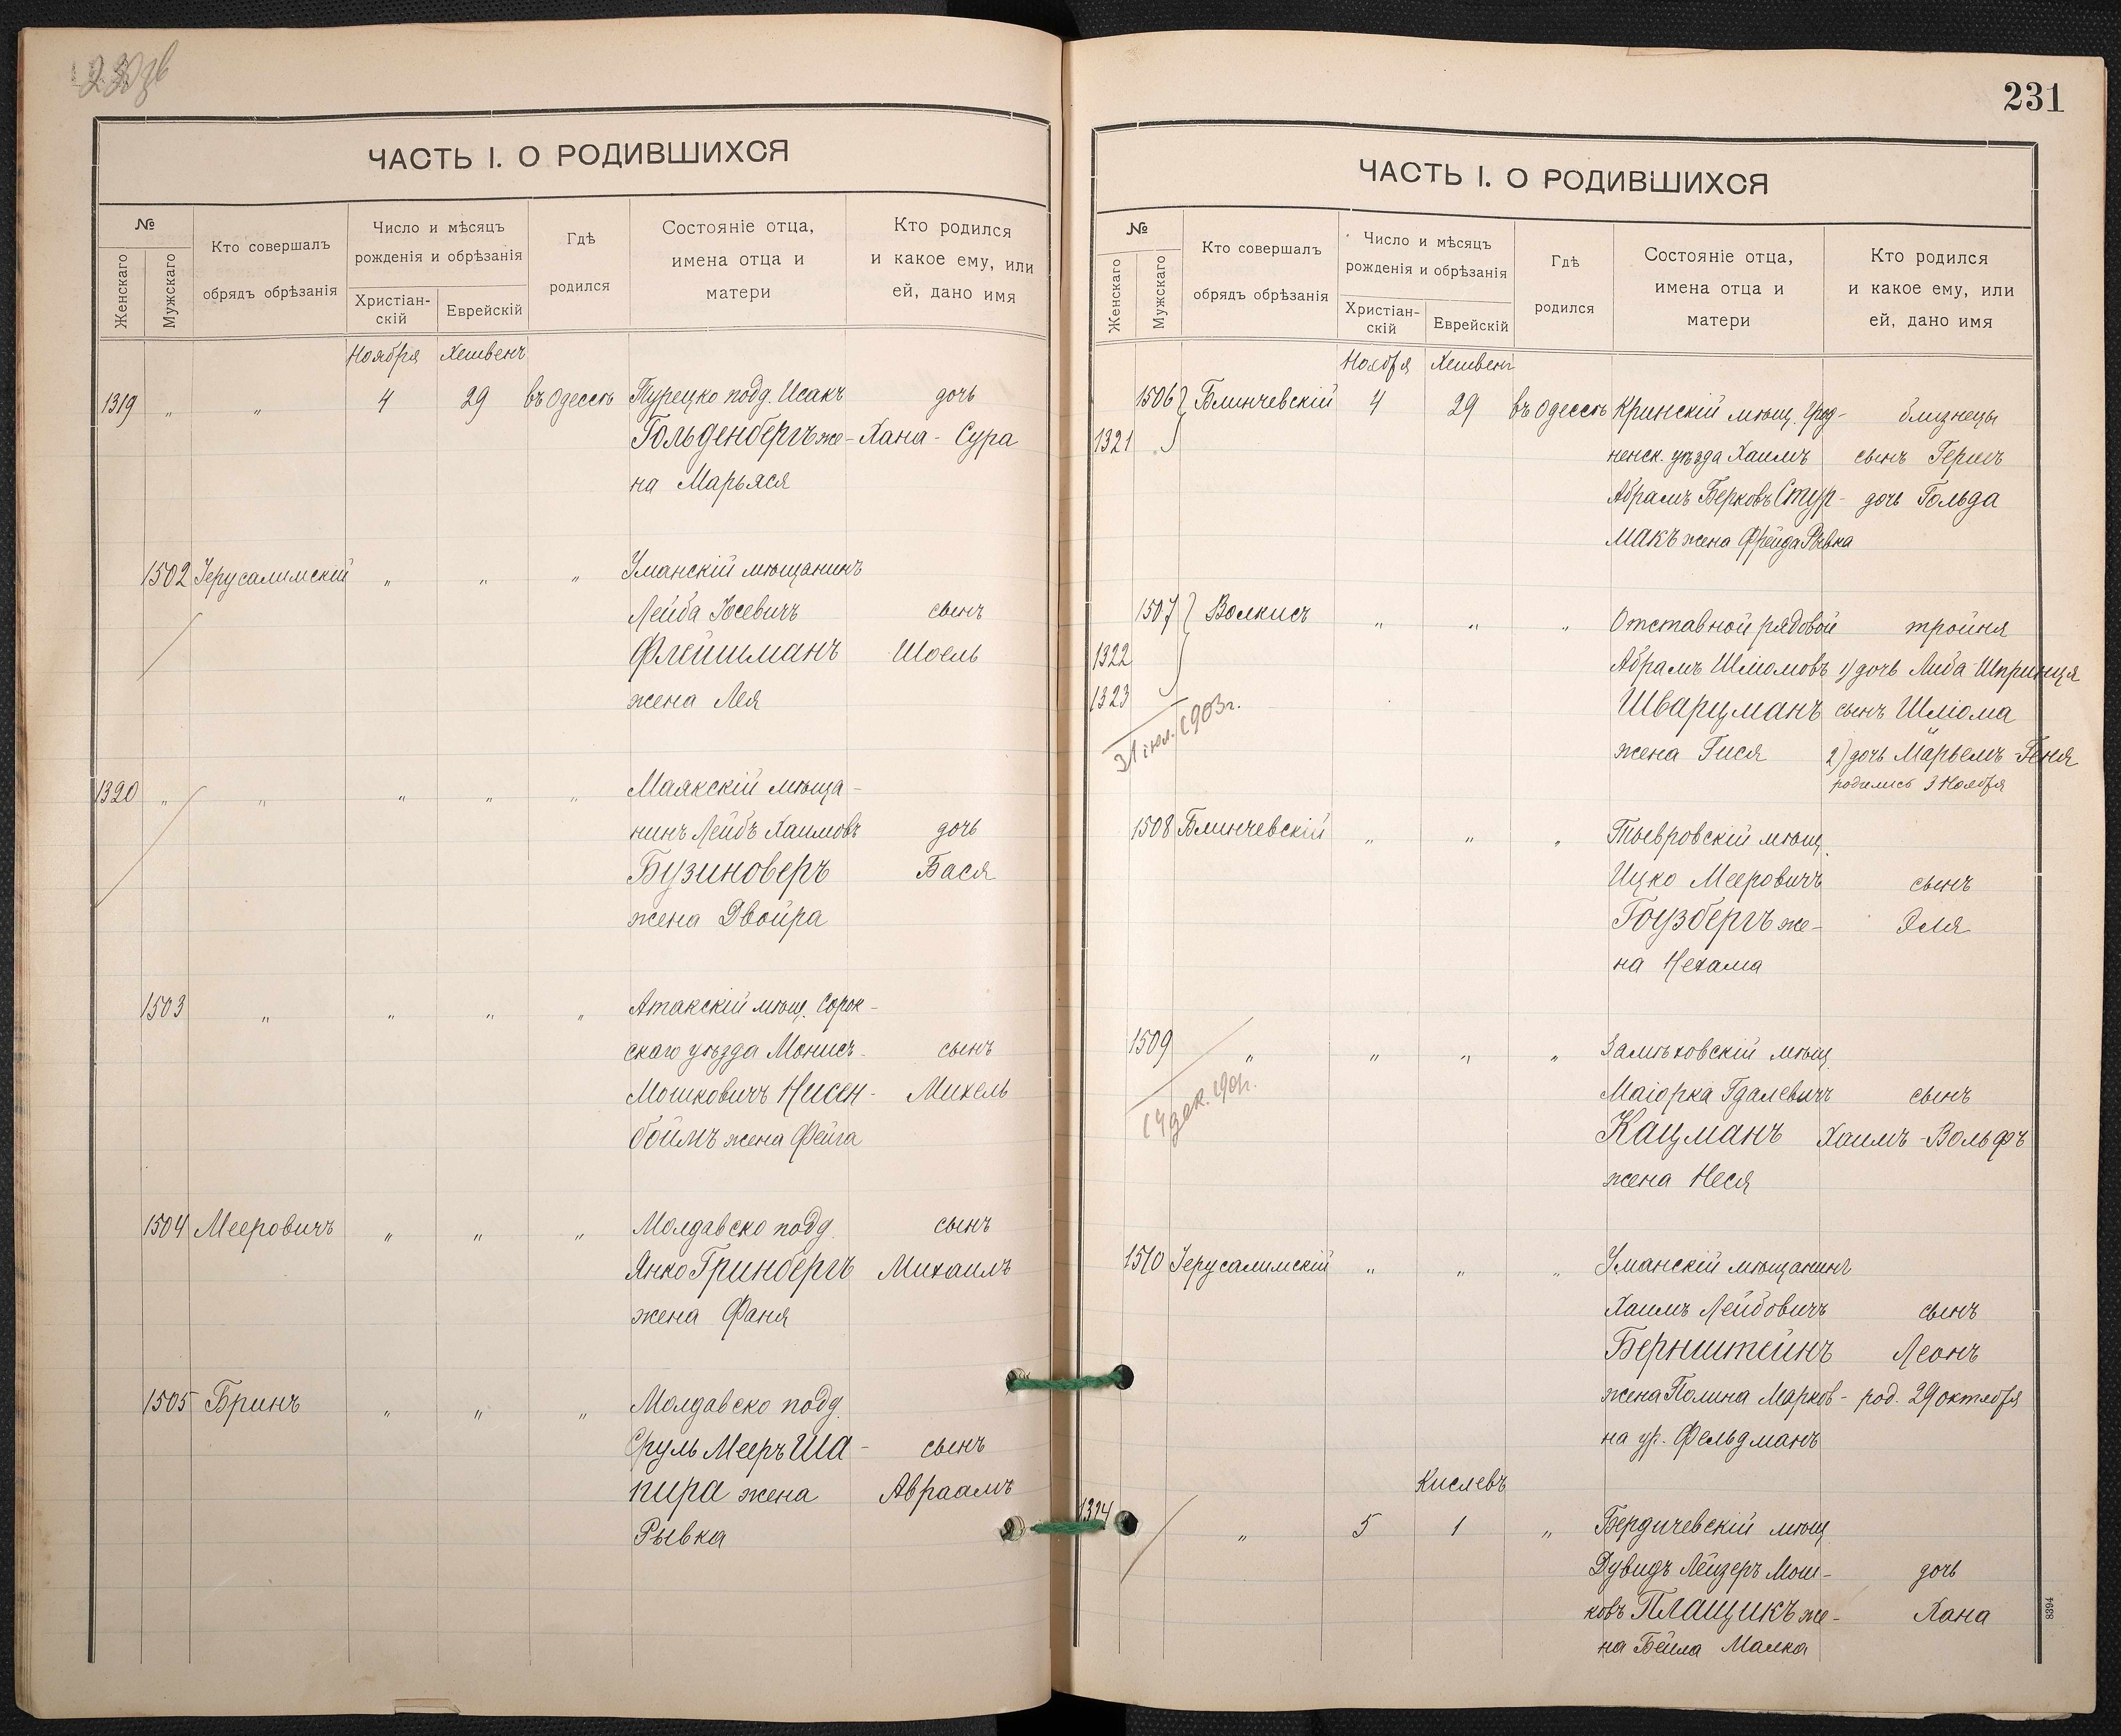 ЧАСТЬ I. О РОДИВШИХСЯ
№
Женскаго
Мужскаго
Кто совершалъ
обрядъ обрѣзанія
Число и мѣсяцъ
рожденія и обрѣзанія
Христіан-
скій
Еврейскій
Гдѣ
родился
Состояніе отца,
имена отца и
матери
Кто родился
и какое ему, или
ей, дано имя
Ноября Хешвенъ
1319 „ „ 4 29 въ Одессѣ Турецко подд. Исакъ дочь
Гольденбергъ же- Хана - Сура
на Марьяся
1502 Іерусалимскій „ „ „ Уманскій мѣщанинъ
Лейба Іосевичъ сынъ
Флейшманъ Шоель
жена Лея
1320 „ „ „ „ „ Маякскій мѣща-
нинъ Лейбъ Хаимовъ дочь
Бузиноверъ Бася
жена Двойра
1503 „ „ „ „ Атакскій мѣщ. Сорок-
скаго уѣзда Монисъ сынъ
Мошковичъ Нисен- Михель
боймъ жена Фейга
1504 Мееровичъ „ „ „ Молдавско подд. сынъ
Янко Гринбергъ Михаилъ
жена Фаня
1505 Бринъ „ „ „ Молдавско подд.
Сруль Мееръ Ша- сынъ
пира жена Авраамъ
Рывка
231
ЧАСТЬ I. О РОДИВШИХСЯ
№
Женскаго
Мужскаго
Кто совершалъ
обрядъ обрѣзанія
Число и мѣсяцъ
рожденія и обрѣзанія
Христіан-
скій
Еврейскій
Гдѣ
родился
Состояніе отца,
имена отца и
матери
Кто родился
и какое ему, или
ей, дано имя
Ноября Хешвенъ
1506 Блинчевскій 4 29 въ Одессѣ Кринскій мѣщ. Грод- близнецы
1321 „ ненск. уѣзда Хаимъ сынъ Гершъ
Абрамъ Берковъ Стур- дочь Гольда
макъ жена Фрейда Рывка
1507 Волкисъ „ „ „ Отставной рядовой тройня
1322 Абрамъ Шліомовъ 1) дочь Либа-Шпринця
1323 Шварцманъ сынъ Шліома
31 іюл. 1903г.
жена Гися 2) дочь Марьемъ-Геня
родились 3 Ноября
1508 Блинчевскій „ „ „ Тывровскій мѣщ.
Ицко Мееровичъ сынъ
Гоузбергъ же- Эля
на Нехама
1509 „ „ „ „ Замѣховскій мѣщ.
14 дек. 190
Маіорка Гдалевичъ сынъ
Кацманъ Хаимъ-Вольфъ
жена Неся
1510 Іерусалимскій „ „ „ Уманскій мѣщанинъ
Хаимъ Лейбовичъ сынъ
Бернштейнъ Леонъ
жена Полина Марков- род. 29 октября
на ур. Фельдманъ
Кислевъ
1324 „ 5 1 „ Бердичевскій мѣщ.
Дувидъ Лейзеръ Мош- дочь
ковъ Плащикъ же- Хана
на Бейла Малка
8394